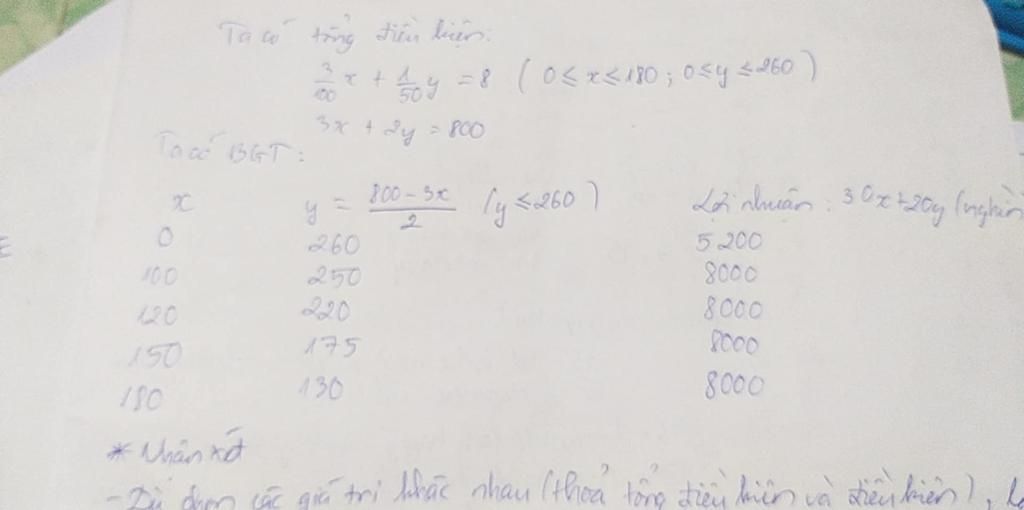 Ta có tổng điều kiện:
3/100 x + 1/50 y = 8 ( 0 ≤ x ≤ 180 ; 0 ≤ y ≤ 260 )
3x + 2y = 800
Ta có BGT:
x y = (800 - 3x)/2 (y ≤ 260) Lợi nhuận: 30x + 20y (nghìn
0 260 5200
100 250 8000
120 220 8000
150 175 8000
180 130 8000
* Nhận xét
- Dù chọn các giá trị khác nhau (thoả tổng điều kiện và điều kiện),